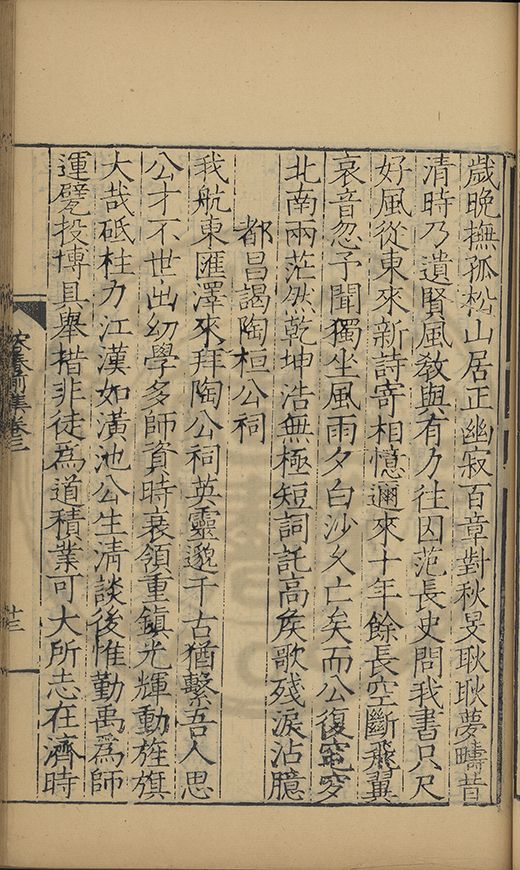 歲晚撫孤松山居正幽寂百章對秋旻耿耿夢疇昔
清時乃遺賢風敎與有力往囚范長史問我書只尺
好風從東來新詩寄相憶邇來十年餘長空斷飛翼
哀音忽予聞獨坐風雨夕白沙久亡矣而公復窀穸
北南兩茫然乾坤浩無極短詞託高矦歌殘淚沾臆
都昌謁陶桓公祠
我航東匯澤來拜陶公祠英靈邈千古猶繫吾人思
公才不世出幼學多師資時衰領重鎮光輝動旌旗
大哉砥柱力江漢如潢池公生淸談後惟勤禹爲師
運甓投博具舉措非徒爲道積業可大所志在濟時
前集卷三
十三